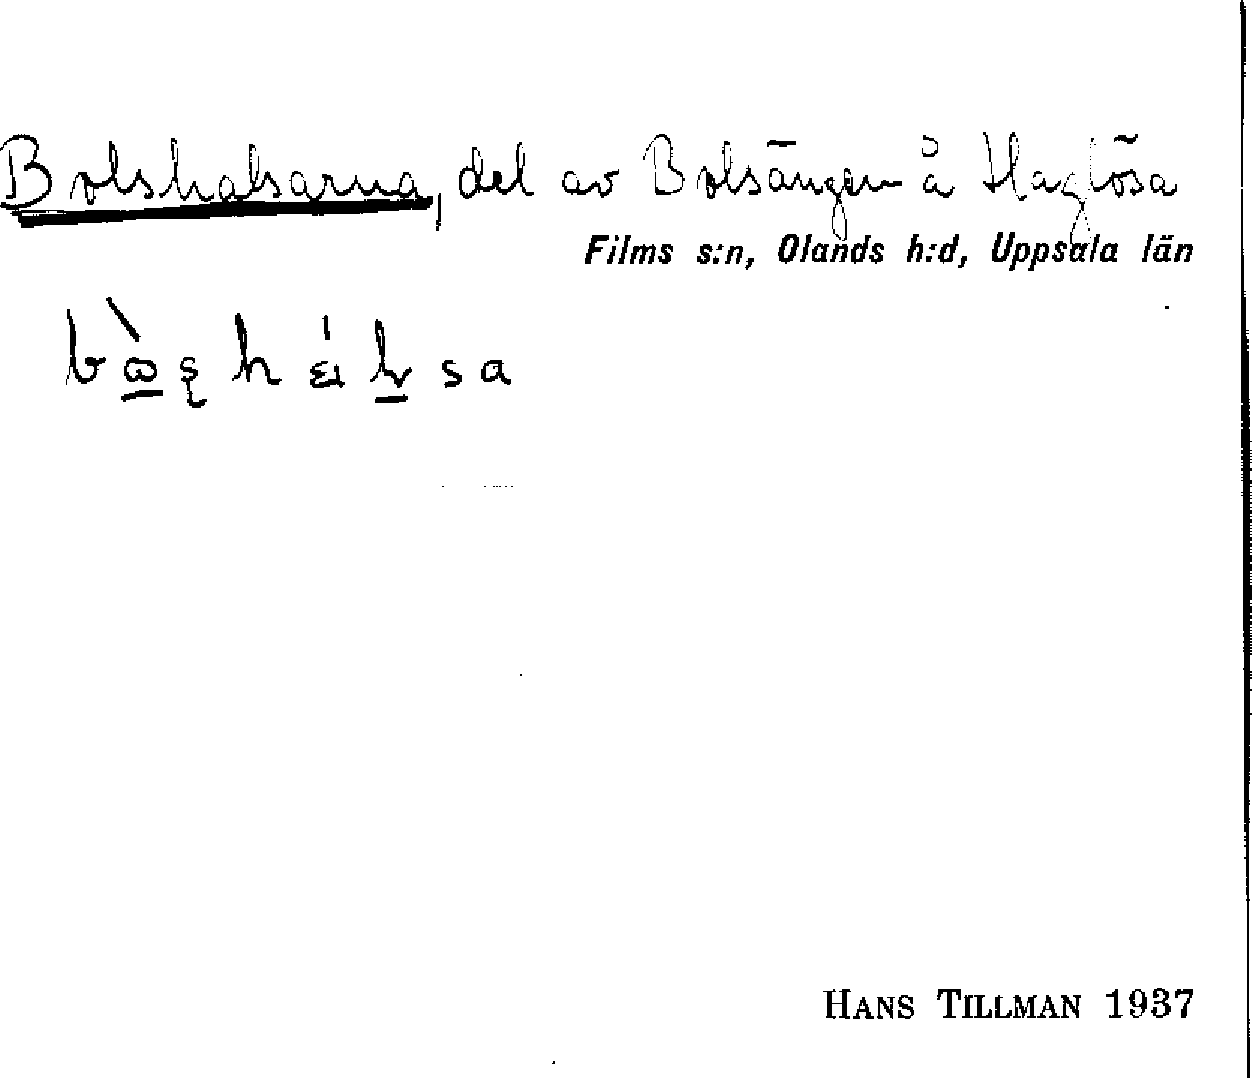 Bolshalsarna, del av Bolsängen å Haglösa
Films s:n, Olands h:d, Uppsala län
HANS TILLMAN 1937